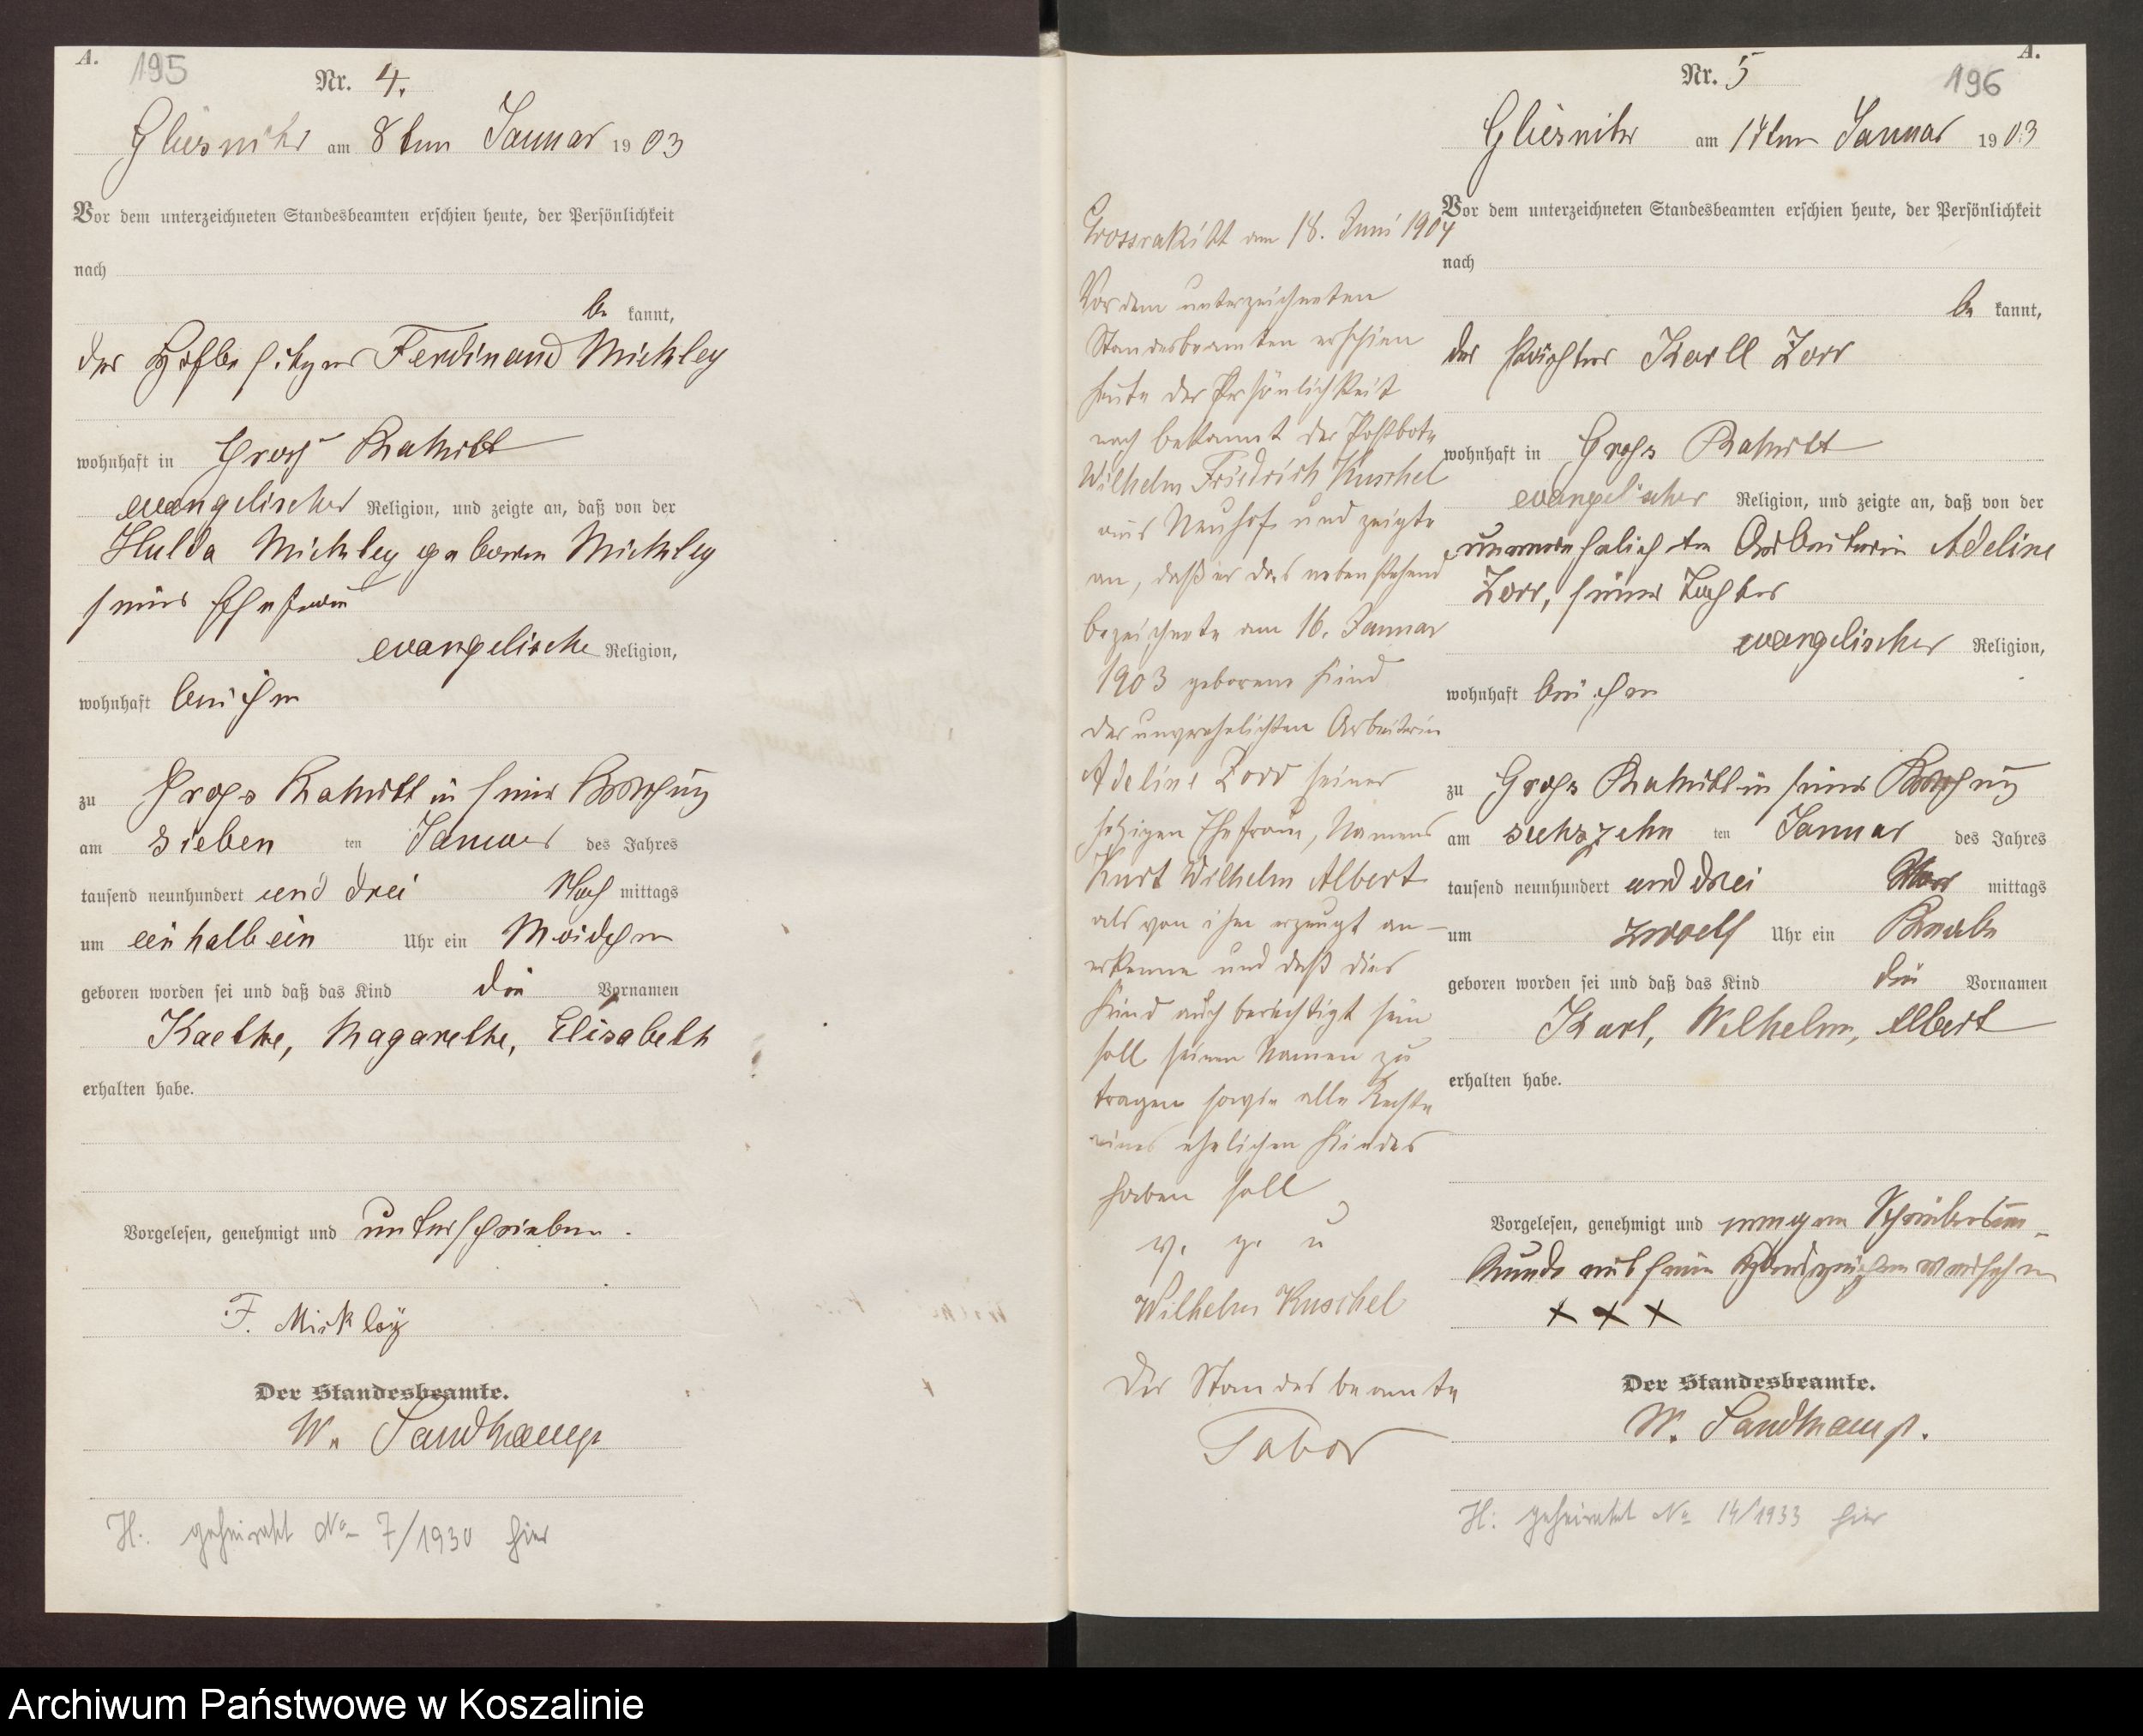 A.
195
Nr. 4.
Gliesnitz am 8ten Januar 1903
Vor dem unterzeichneten Standesbeamten erschien heute, der Persönlichkeit
nach
be kannt,
der Hofbesitzer Ferdinand Mickley
wohnhaft in Gross Rakitt
evangelischer Religion, und zeigte an, daß von der
Hulda Mickley geboren Mickley
seiner Ehefrau
evangelische Religion,
wohnhaft bei ihm
zu Gross Rakitt in seiner Wohnung
am sieben ten Januar des Jahres
tausend neunhundert und drei Nach mittags
um ein halb ein Uhr ein Mädchen
geboren worden sei und daß das Kind die Vornamen
Kaethe, Magarethe, Elisabeth
erhalten habe.
Vorgelesen, genehmigt und unterschrieben.
F. Mickley
Der Standesbeamte.
W. Sandkamp
H. geheiratet No 7/1930 hier
A.
Nr. 5
196
Gliesnitz am 17ten Januar 1903
Vor dem unterzeichneten Standesbeamten erschien heute, der Persönlichkeit
nach
be kannt,
der Pächter Karll Zorr
wohnhaft in Gross Rakitt
evangelischer Religion, und zeigte an, daß von der
unverehelichten Arbeiterin Adeline
Zorr, seiner Tochter
evangelischer Religion,
wohnhaft bei ihm
zu Gross Rakitt in seiner Wohnung
am sechszehn ten Januar des Jahres
tausend neunhundert und drei Vor mittags
um zwoelf Uhr ein Knabe
geboren worden sei und daß das Kind die Vornamen
Kurt, Wilhelm, Albert
erhalten habe.
Vorgelesen, genehmigt und wegen Schreibensun-
kunde mit seinen Handzeichen versehen
x x x
Der Standesbeamte.
W. Sandkamp.
H: geheiratet No 14/1933 hier
Grossrakitt am 18. Juni 1904
Vor dem unterzeichneten
Standesbeamten erschien
heute der Persönlichkeit
nach bekannt der Postbote
Wilhelm Friedrich Kuschel
aus Neuhof und zeigte
an, daß er das nebenstehend
bezeichnete am 16. Januar
1903 geborene Kind
der unverehelichten Arbeiterin
Adeline Zorr seiner
jetzigen Ehefrau, Namens
Kurt Wilhelm Albert
als von ihm erzeugt an-
erkenne und daß dies
Kind auch berechtigt sein
soll seinen Namen zu
tragen sowie alle Rechte
eines ehelichen Kindes
haben soll
v. g. u
Wilhelm Kuschel
Der Standesbeamte
Tabor
Archiwum Państwowe w Koszalinie